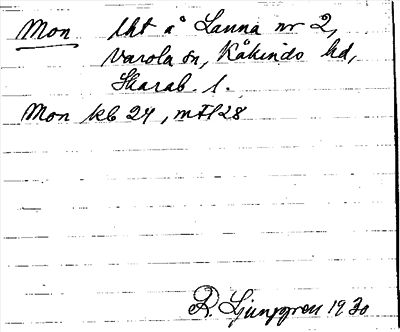 Mon lht å Lanna nr 2,
Varola sn, Kåkinds hd,
Skarab. l.
Mon kb 24, mfl 28
R. Ljunggren 1930